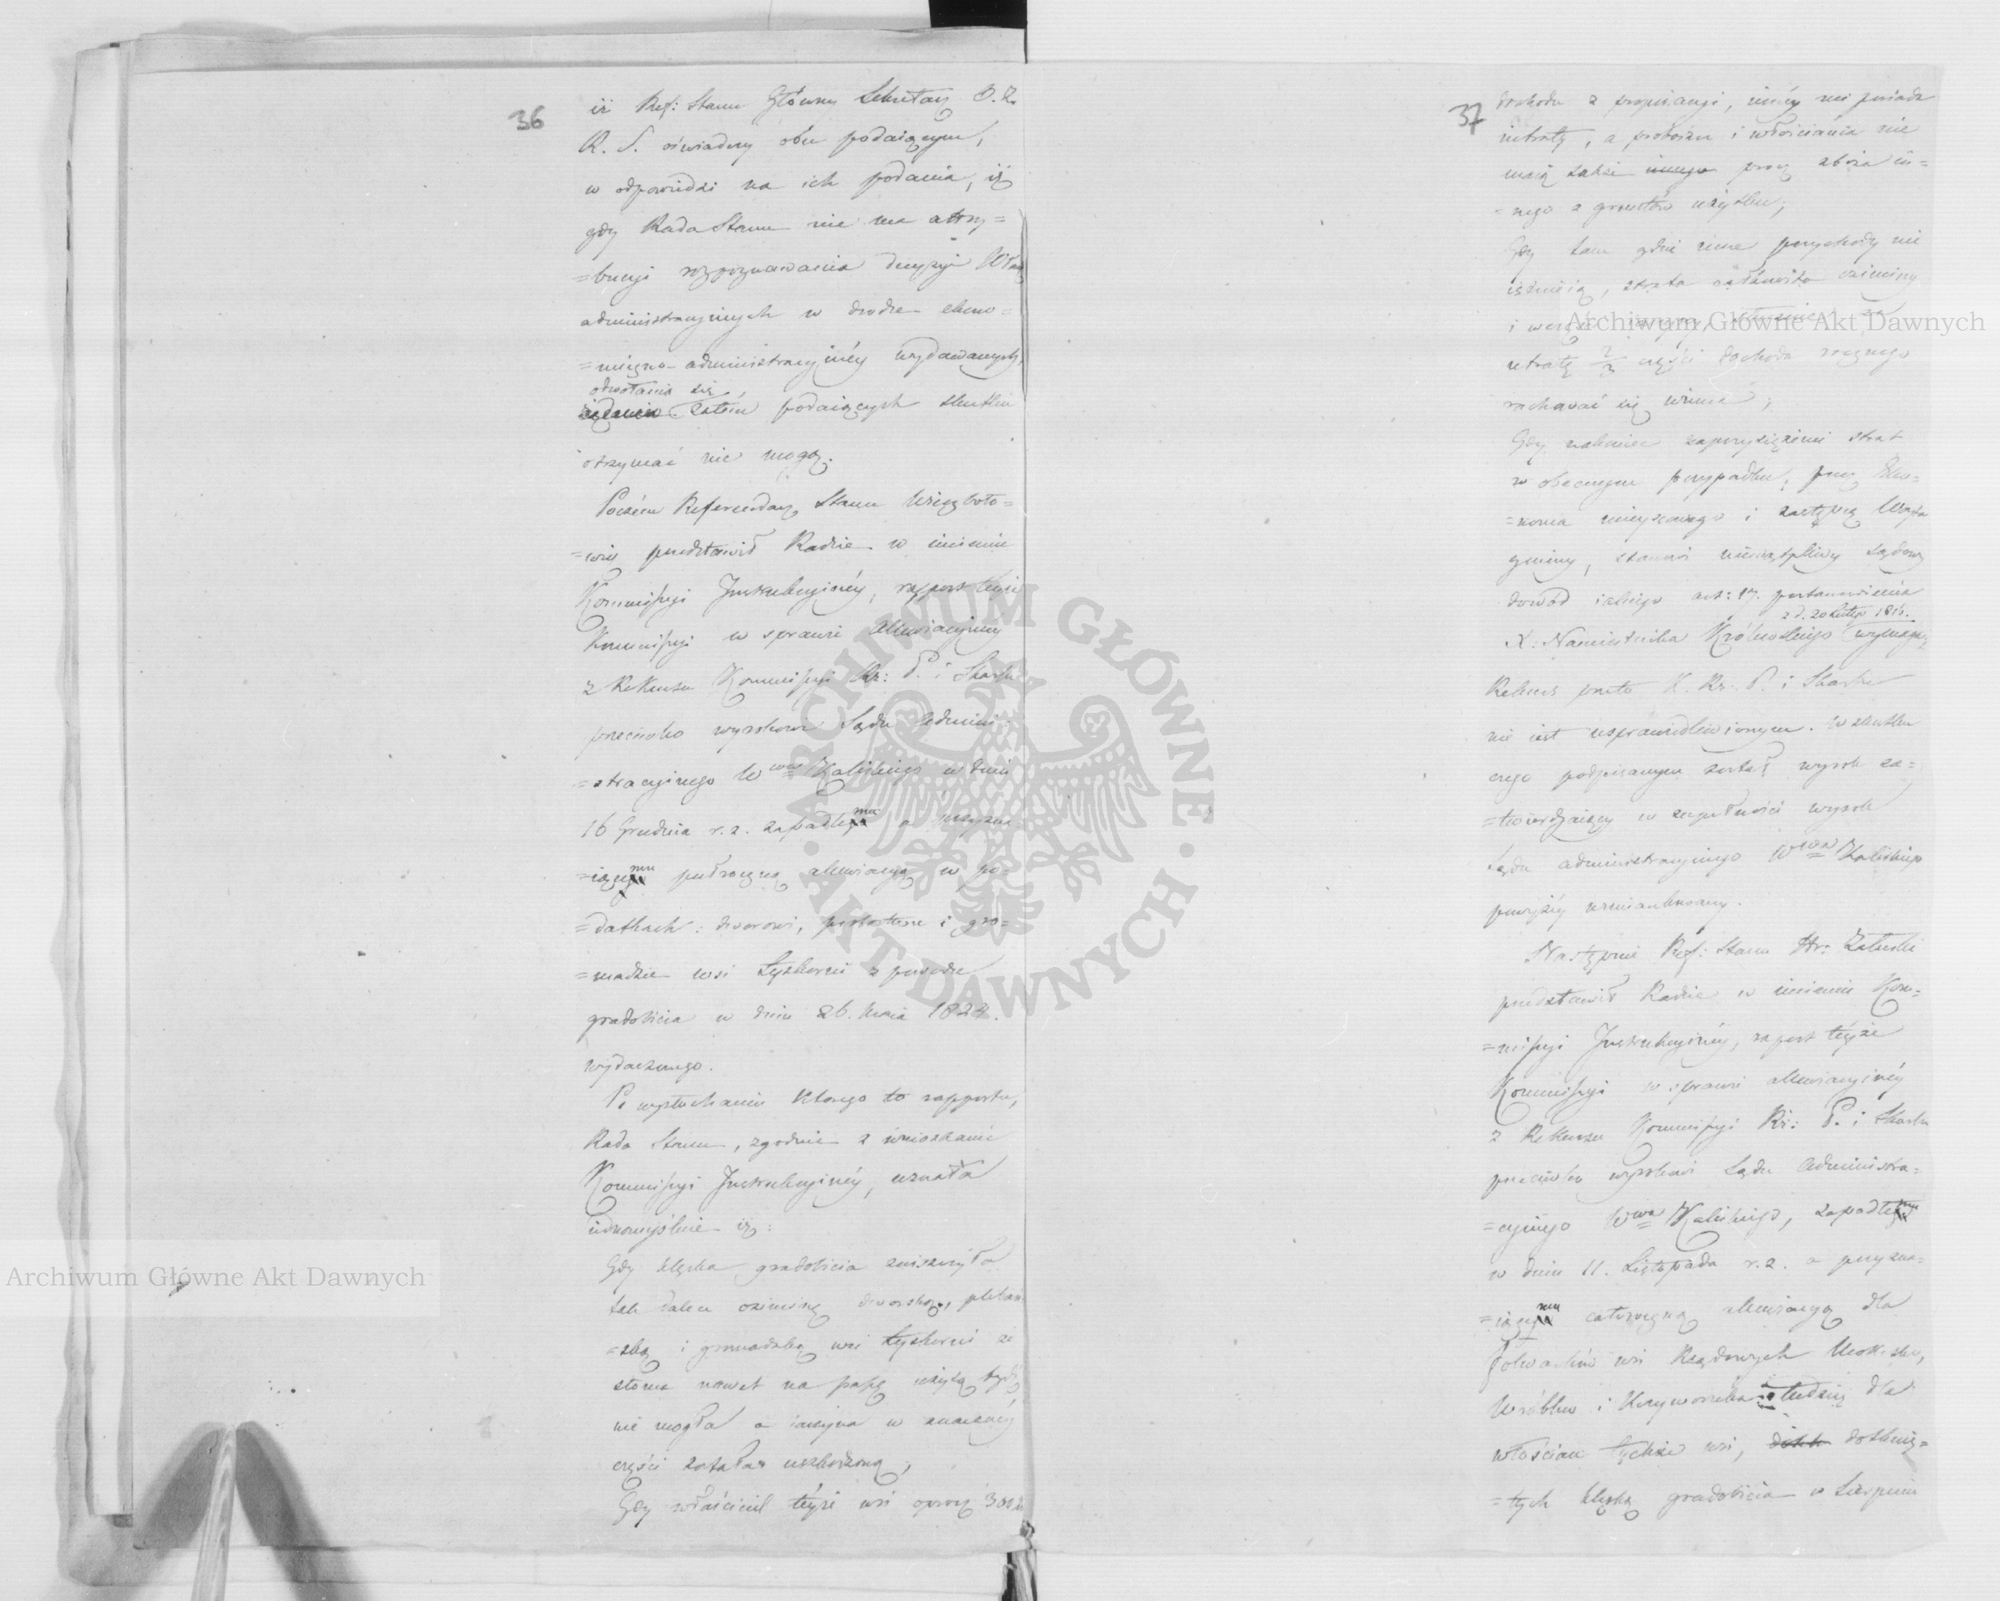 36
iż Ref: Stanu Główny Sekretarz
R. S. oświadczy obu podaiącym,
w odpowiedzi na ich podania, iż
gdy Rada Stanu nie ma attry=
=bucyi rozpoznawania decyzyi Władz
administracyinych w drodze ekono=
=miczno-administracyinéy wydawanych,
odwołania się
zatém podaiących skutku
otrzymać nie mogą.
Poczém Referendarz Stanu
=wicz przedstawił Radzie w imieniu
Kommissyi Instrukcyinéy, rapport teyże
Kommissyi w sprawie allewiacyiney
z Rekursu Kommissyi Rz: P. i Skarbu
przeciwko wyrokowi Sądu Admini=
=stracyinego Wwa Kaliskiego w dniu
16 Grudnia r. z. zapadłemu a przyzna=
=iącemu półroczną allewiacyą w po=
=datkach: dworowi, probostwu i gro=
=madzie wsi z powodu
gradobicia w dniu 26. Maia 1824.
wydarzonego.
Po wysłuchaniu którego to rapportu,
Rada Stanu, zgodnie z wnioskami
Kommissyi Instrukcyinéy, uznała
iednomyślnie iż:
Gdy klęska gradobicia zniszczyła
tak dalece oziminę dworską, pleban=
=ską i gromadzką wsi że
słoma nawet na paszę użytą bydź
nie mogła a iarzyna w znacznéy
części została uszkodzoną,
Gdy właściciel téyże wsi oprócz 300
37
dochodu z propinacyi, innéy nie posiada
intraty, a proboszcz i włościanie nie
maią także innego prócz zboża in=
=nego z gruntów użytku;
Gdy tam gdzie inne przychody nie
istnieią, strata całkowita oziminy
i części iarzyny, słusznie za
utratę 2/3 części dochodu rocznego
rachować się winna;
Gdy nakoniec zaprzysiężenie strat
w obecnym przypadku, przez Eko=
=noma mieyscowego i zastępcę Wóyta
gminy, stanowi niewątpliwy sądowy
dowód iakiego art: 17. postanowienia
z d. 20 Lutego 181
X. Namiestnika Królewskiego wymaga,
Rekurs przeto K. Rz. P. i Skarbu
nie iest usprawiedliwionym. W skutku
czego podpisanym został wyrok za=
=twierdzaiący w zupełności wyrok
Sądu administracyinego Wwa Kaliskiego
powyżéy wzmiankowany.
Następnie Ref: Stanu Hr: Załuski
przedstawił Radzie w imieniu Kom=
=missyi Instrukcyinéy, raport téyże
Kommissyi w sprawie allewiacyinéy
z Rekursu Kommissyi Rz: P. i Skarbu
przeciwko wyrokowi Sądu Administra=
=cyinego Wwa Kaliskiego, zapadłemu
w dniu 11. Listopada r. z. a przyzna=
=iącemu całoroczną allewiacyą dla
folwarków wsi Rządowych
i tudzież dla
włościan tychże wsi, dotknię=
=tych klęską gradobicia w Sierpniu
Archiwum Główne Akt Dawnych
Archiwum Główne Akt Dawnych
ARCHIWUM GŁÓWNE · AKT DAWNYCH ·